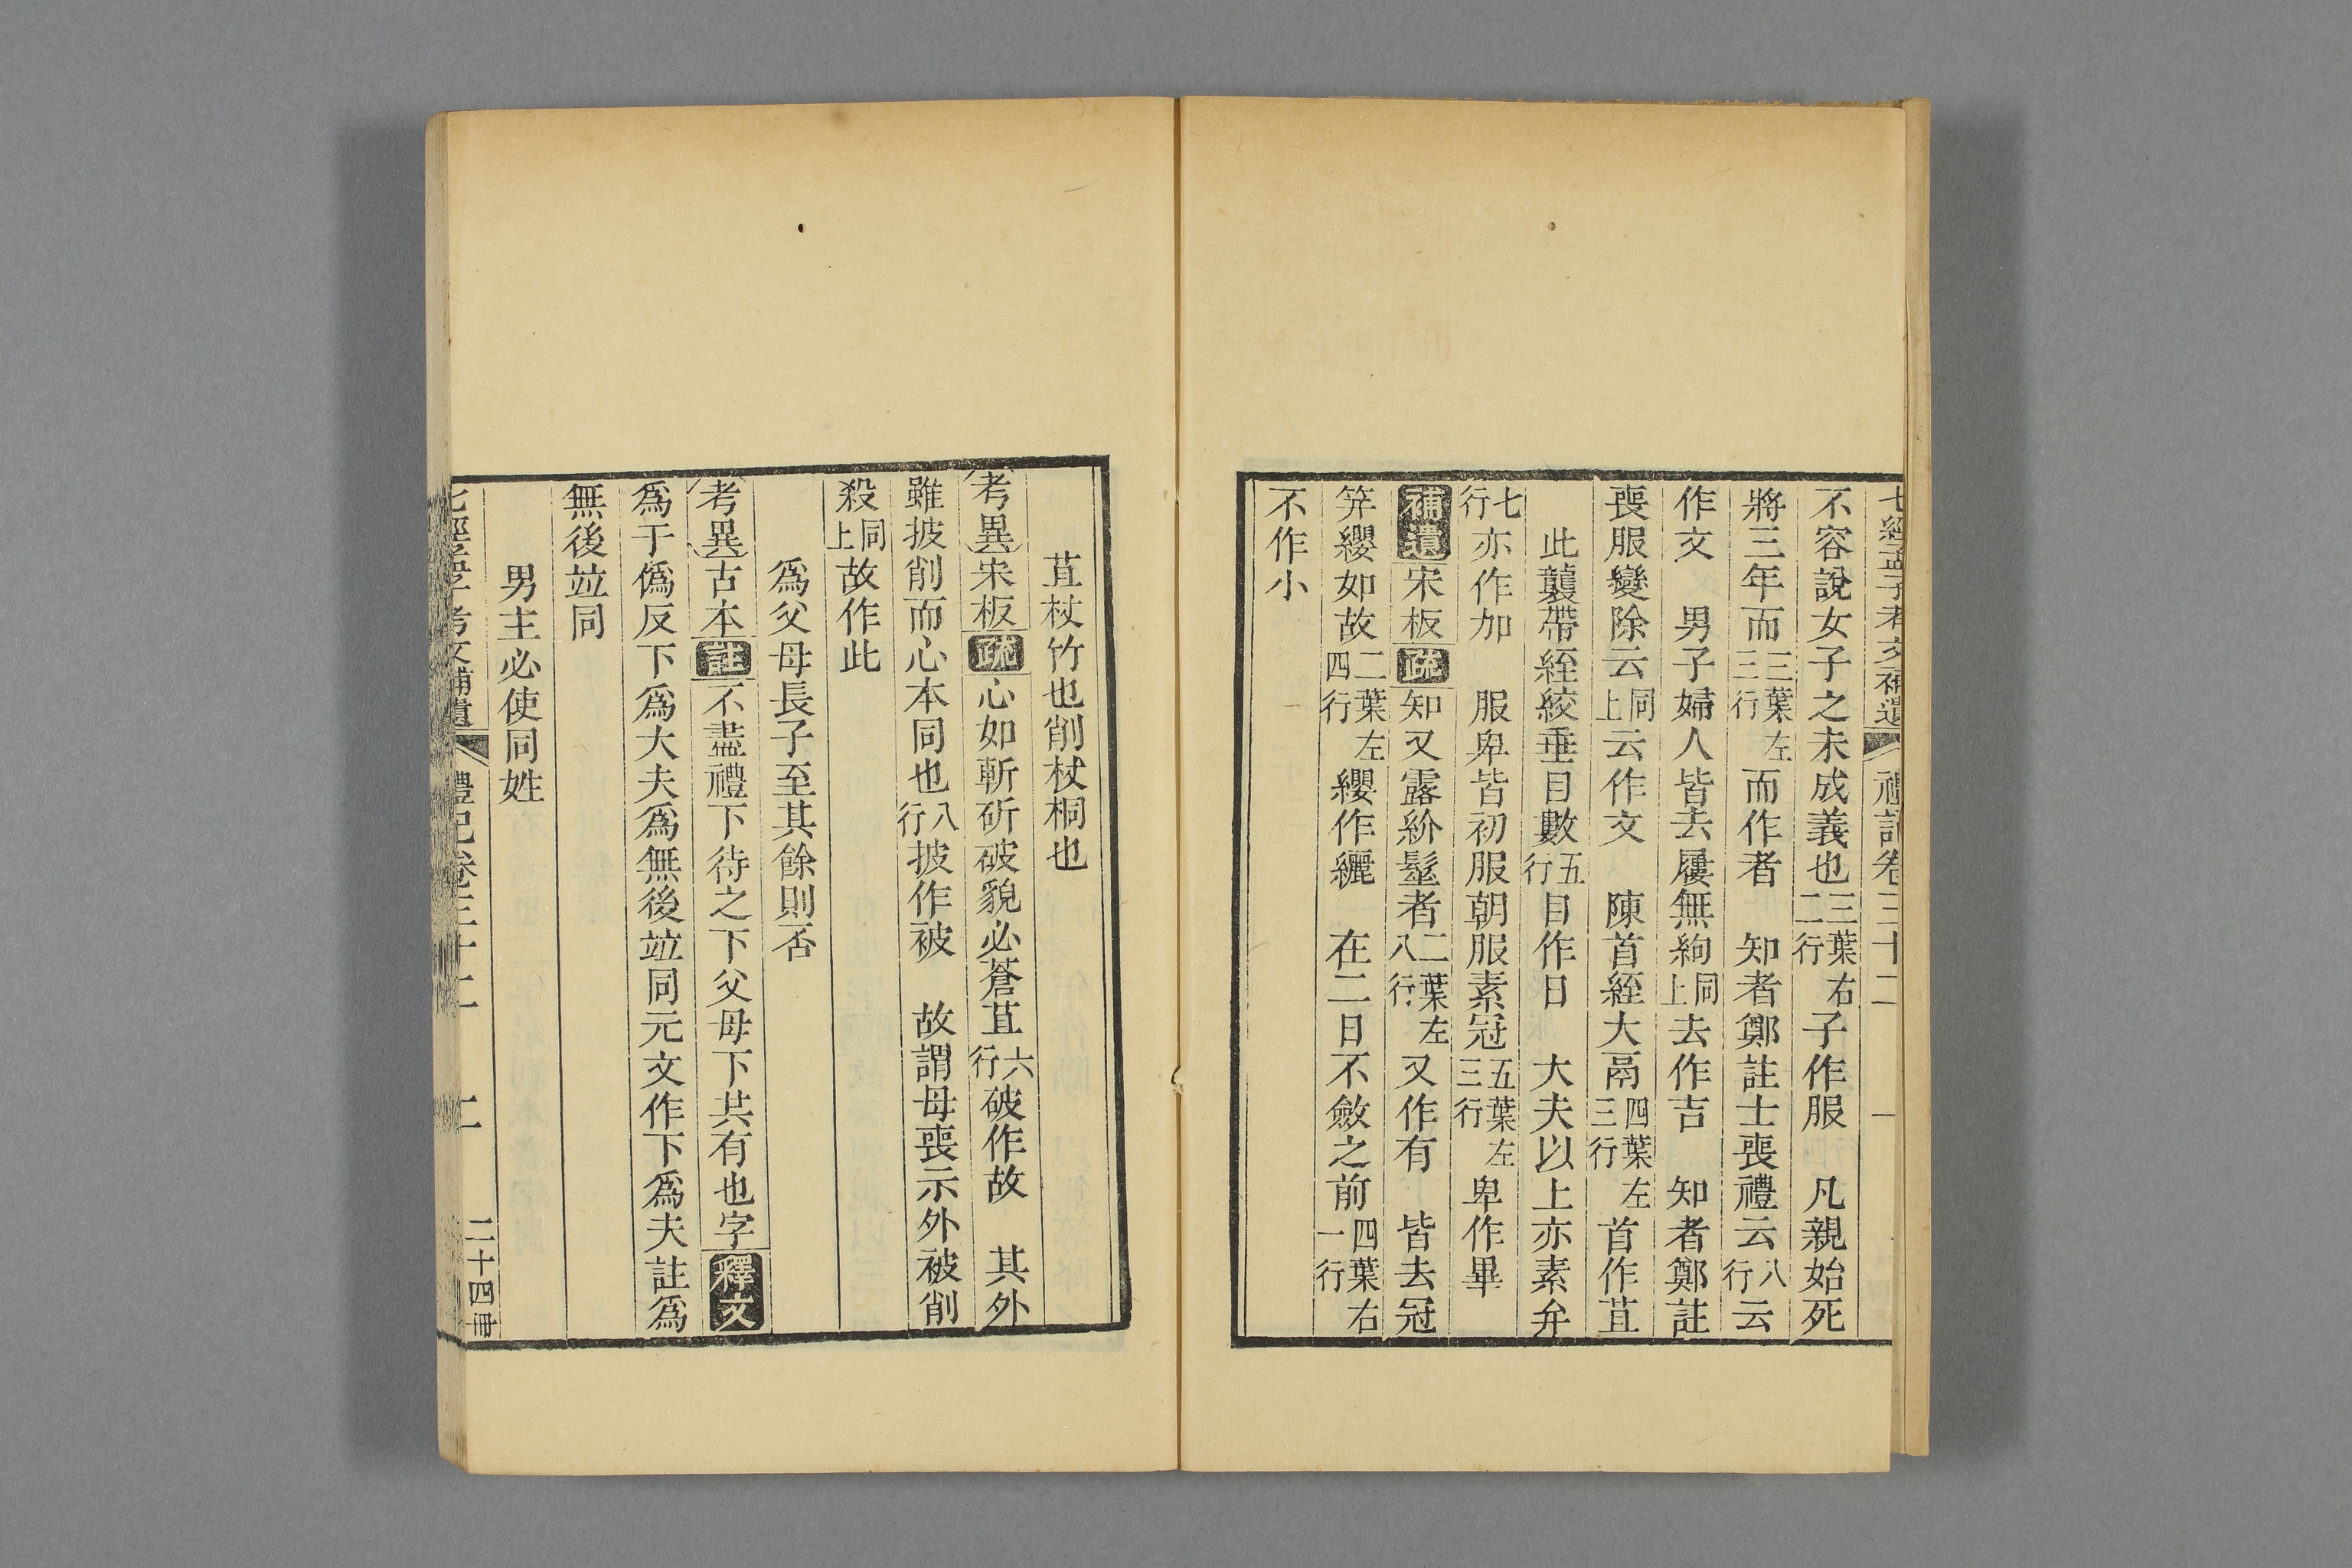 七經孟子考文補遺　禮記卷三十二　一
不容說女子之未成義也三葉右二行子作服　凡親始死
將三年而三葉左三行而作者　知者鄭註士喪禮云八行云
作文　男子婦人皆去屨無絇同上去作吉　知者鄭註
喪服變除云同上云作文　陳首絰大鬲四葉左三行首作苴
此襲帶絰絞垂目數五行目作日　大夫以上亦素弁
七行亦作加　服卑皆初服朝服素冠五葉左三行卑作畢
補遺宋板疏知又露紒髽者二葉左八行又作有　皆去冠
笄纓如故二葉左四行纓作纚　在二日不斂之前四葉右一行
不作小
苴杖竹也削杖桐也
考異宋板疏心如斬斫破貌必蒼苴六行破作故　其外
雖披削而心本同也八行披作被　故謂母喪示外被削
殺同上故作此
爲父母長子至其餘則否
考異古本註不盡禮下待之下父母下共有也字釋文
爲于僞反下爲大夫爲無後竝同元文作下爲夫註爲
無後竝同
男主必使同姓
七經孟子考文補遺　禮記卷三十二　二　二十四冊